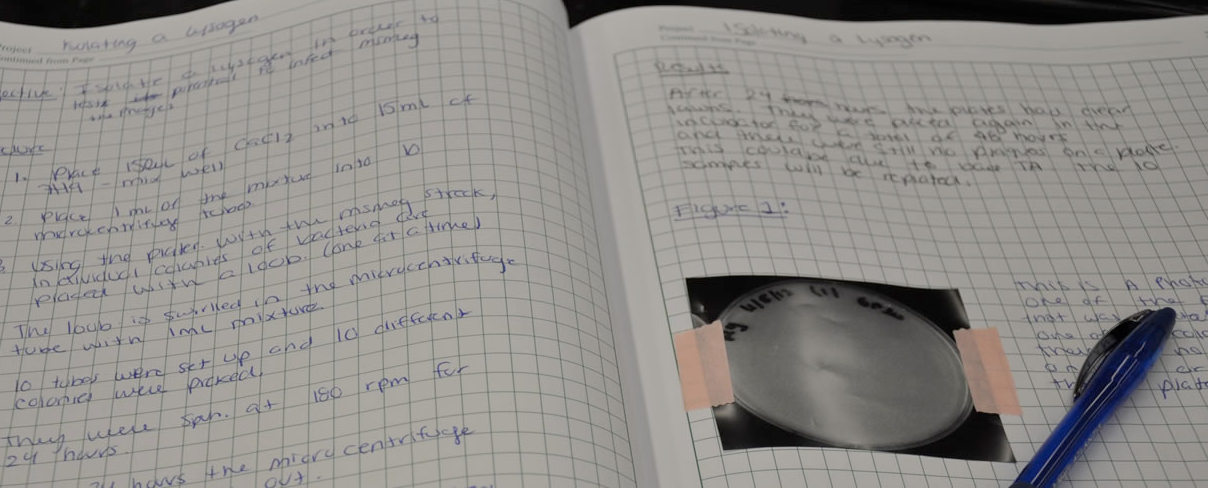 Project Isolating a Lysogen
Continued from Page
Objective: Isolate a lysogen in order to
potential to infect msmeg
the phages
1. Place 150uL of CaCl2 into 15mL of
7H9 - mix well
2. Place 1mL of the mixture into 10
microcentrifuge tubes
Using the plates with the msmeg streak,
individual colonies of bacteria are
placed with a loob. (one at a time)
The loub is swirled in the microcentrifuge
tube with 1mL mixture.
10 tubes were set up and 10 different
colonies were picked.
They were spun at 180 rpm for
24 hours.
24 hours the microcentrifuge
out.
Project Isolating a Lysogen
Continued from Page
Results
After 24 hours the plates had clear
lawns. They were placed again in the
incubator for a total of 48 hours
and there were still no plaques on a plate.
This could be due to TA. The 10
samples will be repeated.
Figure 1:
This is a photo
one of the
that was
one of
plate